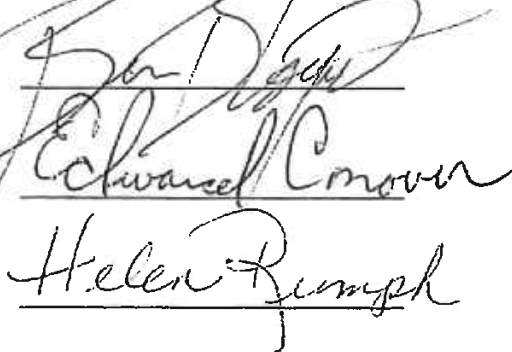 Ron
Edward Conover
Helen Rumph